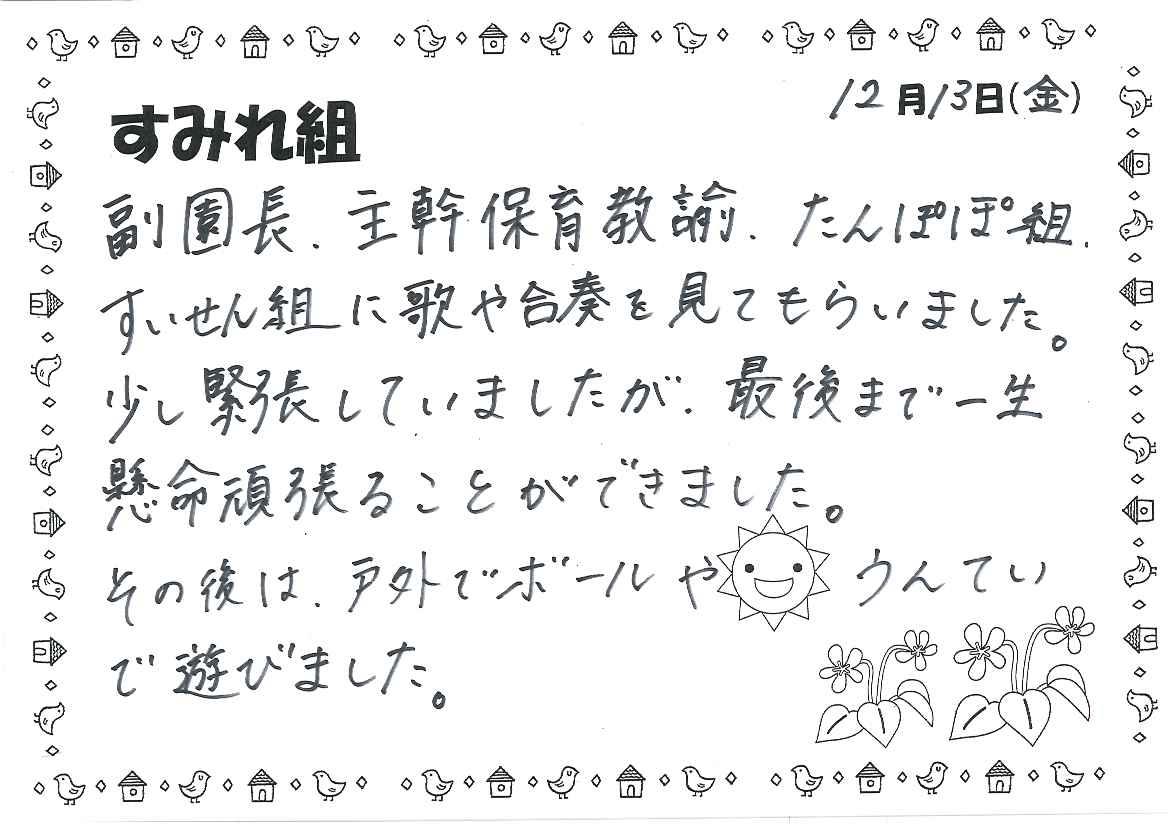 12月13日(金)
すみれ組
副園長、主幹保育教諭、たんぽぽ組、
すいせん組に歌や合奏を見てもらいました。
少し緊張していましたが、最後まで一生
懸命頑張ることができました。
その後は、戸外でボールやうんてい
で遊びました。